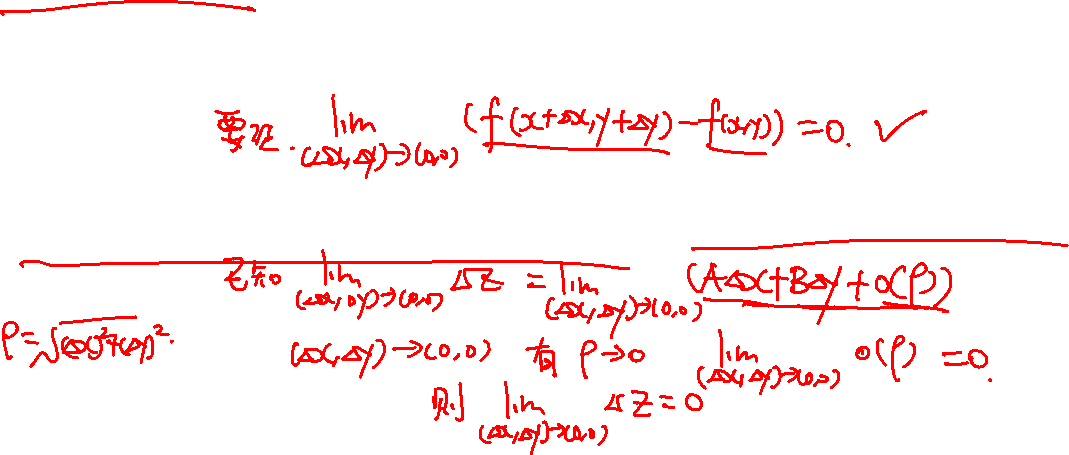 要证. lim (Δx,Δy)→(0,0) (f(x+Δx,y+Δy)-f(x,y))=0. ✓
已知 lim (Δx,Δy)→(0,0) ΔZ = lim (Δx,Δy)→(0,0) (AΔx+BΔy+o(ρ))
ρ=√(Δx)²+(Δy)². (Δx,Δy)→(0,0) 有 ρ→0 lim (Δx,Δy)→(0,0) o(ρ)=0.
则 lim (Δx,Δy)→(0,0) ΔZ=0